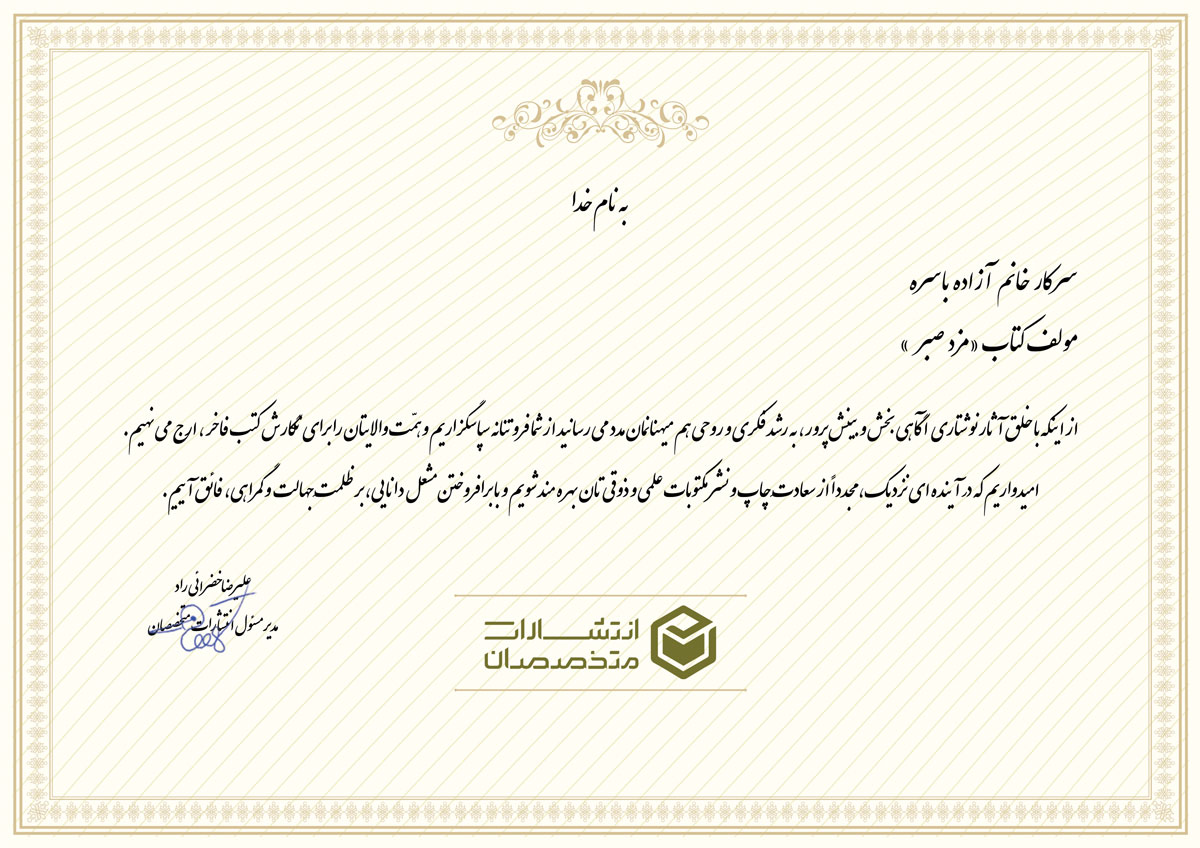 به نام خدا
سرکار خانم آزاده باسره
مولف کتاب «مزد صبر »
از اینکه با خلق آثار نوشتاری آگاهی بخش و بینش پرور، به رشد فکری و روحی هم میهنانمان مدد می رسانید از شما فروتنانه سپاسگزاریم و همّت والایتان را برای نگارش کتب فاخر، ارج می نهیم.
امیدواریم که در آینده ای نزدیک، مجدداً از سعادت چاپ و نشر مکتوبات علمی و ذوقی تان بهره مند شویم و با برافروختن مشعل دانایی، بر ظلمت جهالت و گمراهی، فائق آییم.
علیرضا خضرائی راد
مدیر مسئول انتشارات متخصصان
انتشارات
متخصصان